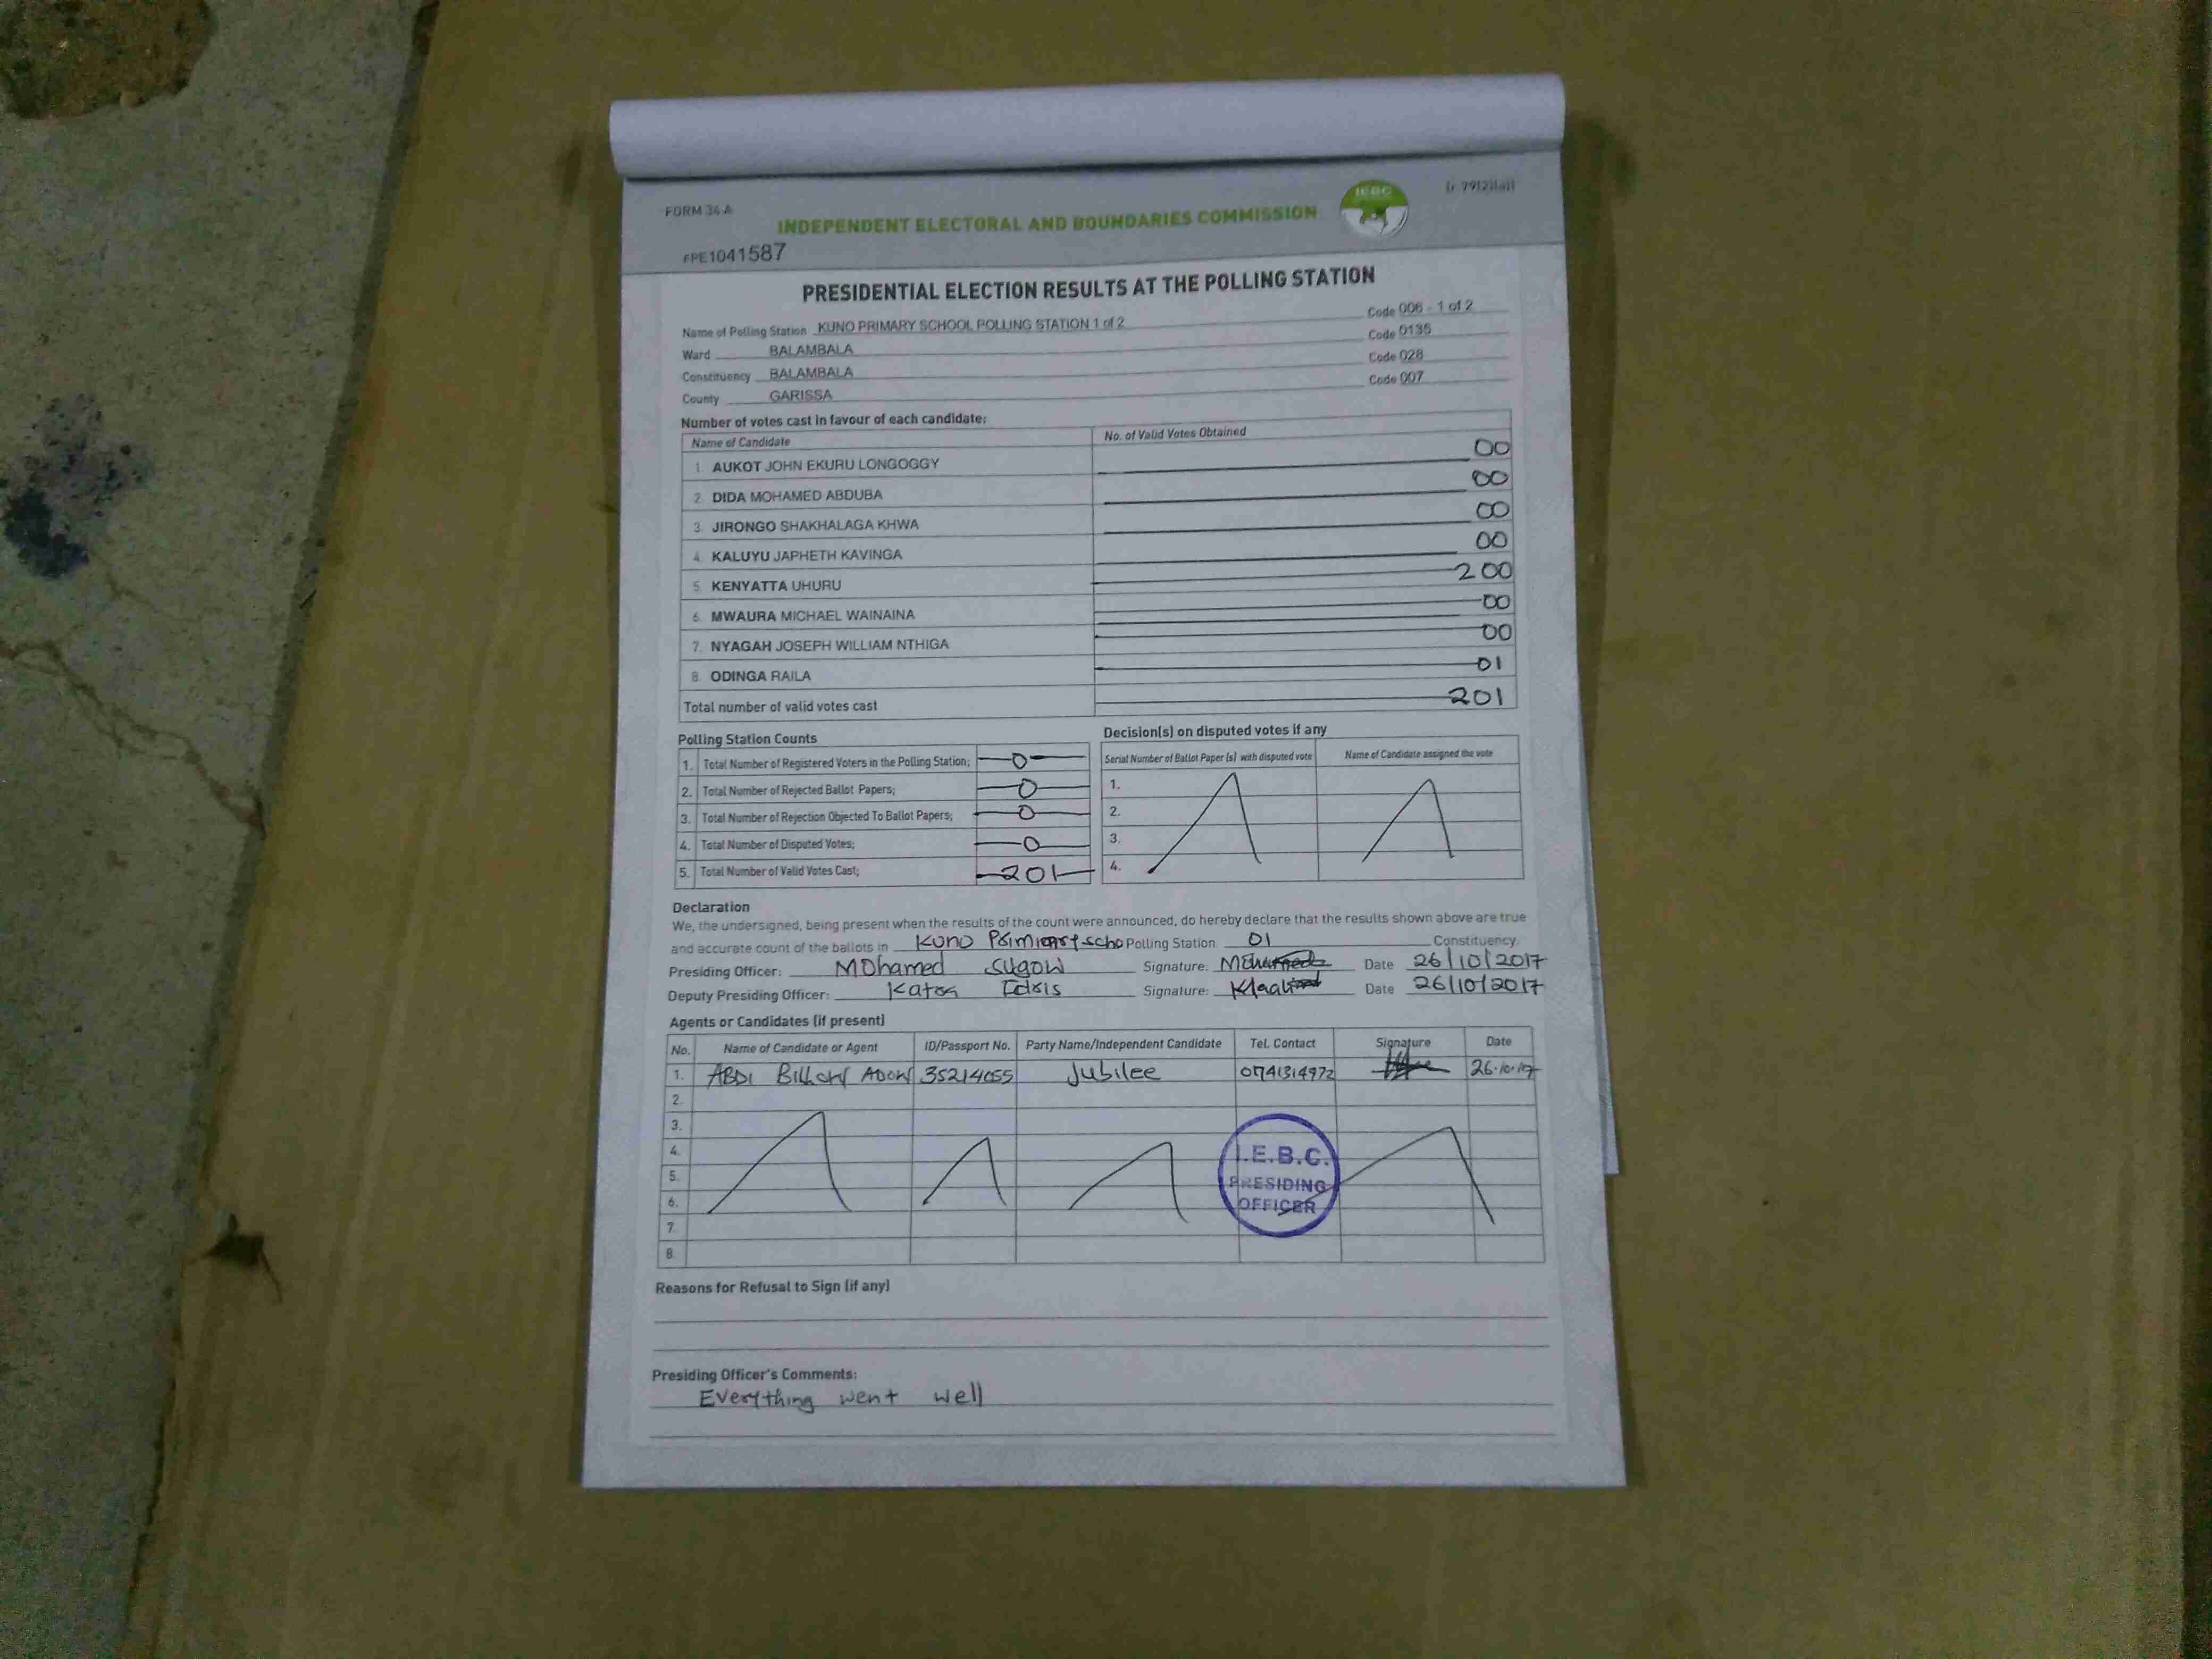 FORM 34 A
INDEPENDENT ELECTORAL AND BOUNDARIES COMMISSION
IEBC
FPE1041587
PRESIDENTIAL ELECTION RESULTS AT THE POLLING STATION
Name of Polling Station KUNO PRIMARY SCHOOL POLLING STATION 1 of 2 Code 006 - 1 of 2
Ward BALAMBALA Code 0135
Constituency BALAMBALA Code 028
County GARISSA Code 007
Number of votes cast in favour of each candidate:
Name of Candidate No. of Valid Votes Obtained
1. AUKOT JOHN EKURU LONGOGGY 00
2. DIDA MOHAMED ABDUBA 00
3. JIRONGO SHAKHALAGA KHWA 00
4. KALUYU JAPHETH KAVINGA 00
5. KENYATTA UHURU 200
6. MWAURA MICHAEL WAINAINA 00
7. NYAGAH JOSEPH WILLIAM NTHIGA 00
8. ODINGA RAILA 01
Total number of valid votes cast 201
Polling Station Counts
1. Total Number of Registered Voters in the Polling Station; 0
2. Total Number of Rejected Ballot Papers; 0
3. Total Number of Rejection Objected To Ballot Papers; 0
4. Total Number of Disputed Votes; 0
5. Total Number of Valid Votes Cast; 201
Decision(s) on disputed votes if any
Serial Number of Ballot Paper (s) with disputed vote Name of Candidate assigned the vote
1.
2.
3.
4.
Declaration
We, the undersigned, being present when the results of the count were announced, do hereby declare that the results shown above are true
and accurate count of the ballots in Kuno Polling Station 01 Constituency.
Presiding Officer: Mohamed Sugow Signature: Date 26/10/2017
Deputy Presiding Officer: Idris Signature: Date 26/10/2017
Agents or Candidates (if present)
No. Name of Candidate or Agent ID/Passport No. Party Name/Independent Candidate Tel. Contact Signature Date
1. ABDI 35214055 Jubilee 0741314972 26.10.17
2.
3.
4.
5.
6.
7.
8.
I.E.B.C.
PRESIDING
OFFICER
Reasons for Refusal to Sign (if any)
Presiding Officer's Comments:
Everything went well